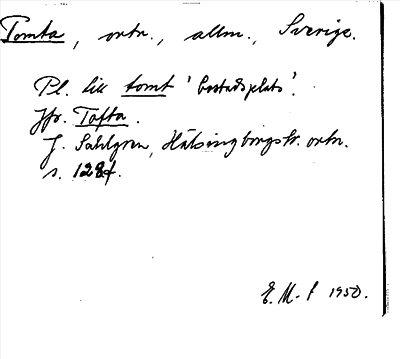 Tomta, ortn., allm., Sverige.
Pl. till tomt 'bostadsplats'.
Jfr. Tofta.
J. Sahlgren, Hälsingborgstr. ortn.
s. 128f.
E. M-f 1950.